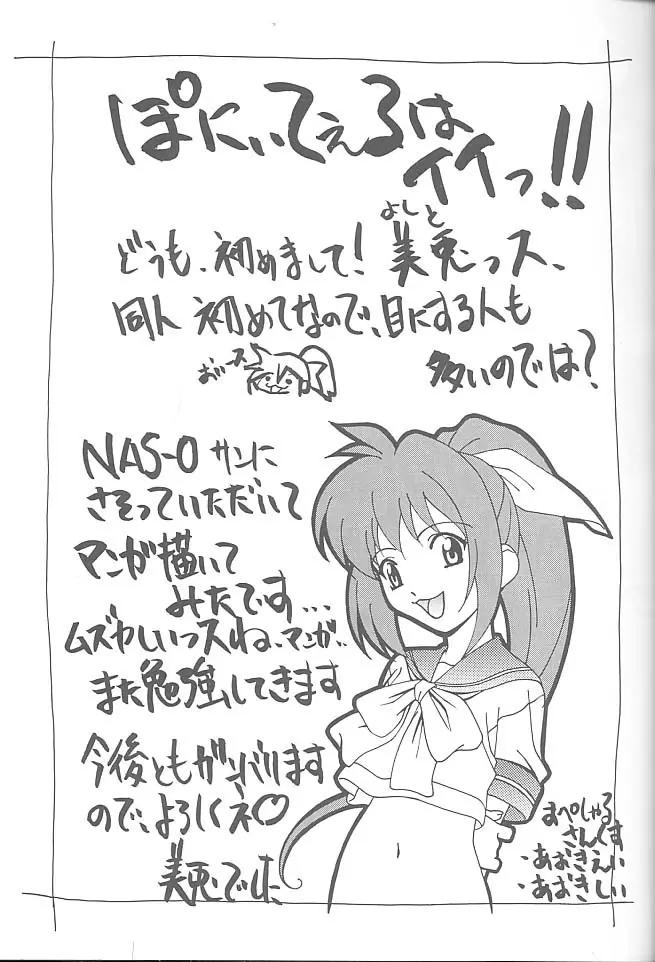 ぽにぃてぇるは
イイっ!!
よしと
どうも、初めまして!美兎っス、
同人 初めてなので、目にする人も
多いのでは?
おぃース
NAS-O サンに
さそっていただいて
マンガ描いて
みたです...
ムズかしいっスね、マンガ..
また勉強してきます
今後ともガンバリます
ので、よろしくネ♡
美兎でした
すぺしゃる
さんくす
・あおきえい
・あおきしい